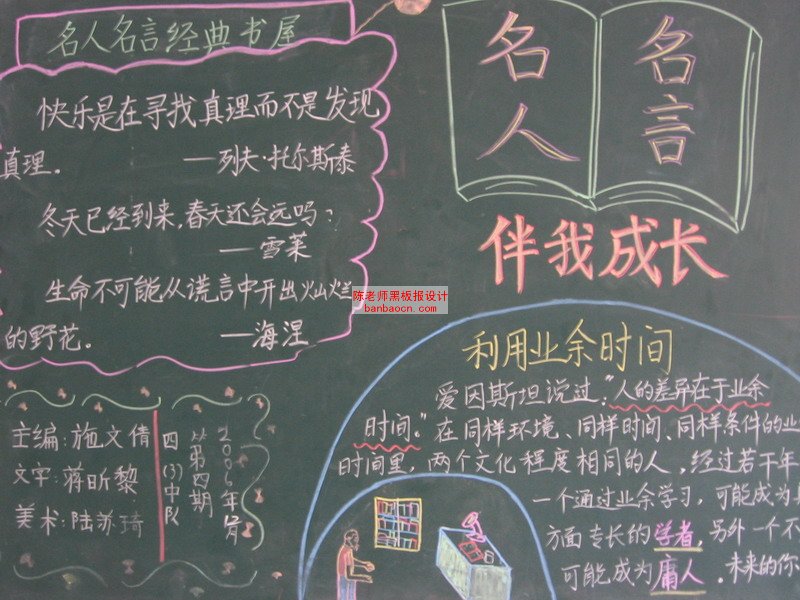 名人名言经典书屋
快乐是在寻找真理而不是发现
真理。 —列夫·托尔斯泰
冬天已经到来，春天还会远吗？
—雪莱
生命不可能从谎言中开出灿烂
的野花。 —海涅
主编：施文倩
文字：蒋昕黎
美术：陆苏琦
四(3)中队
第四期
2006年
名人
名言
伴我成长
陈老师黑板报设计
banbaocn.com
利用业余时间
爱因斯坦说过：“人的差异在于业余
时间。”在同样环境、同样时间、同样条件的业
时间里，两个文化程度相同的人，经过若干年
一个通过业余学习，可能成为
方面专长的学者，另外一个不
可能成为庸人。未来的你